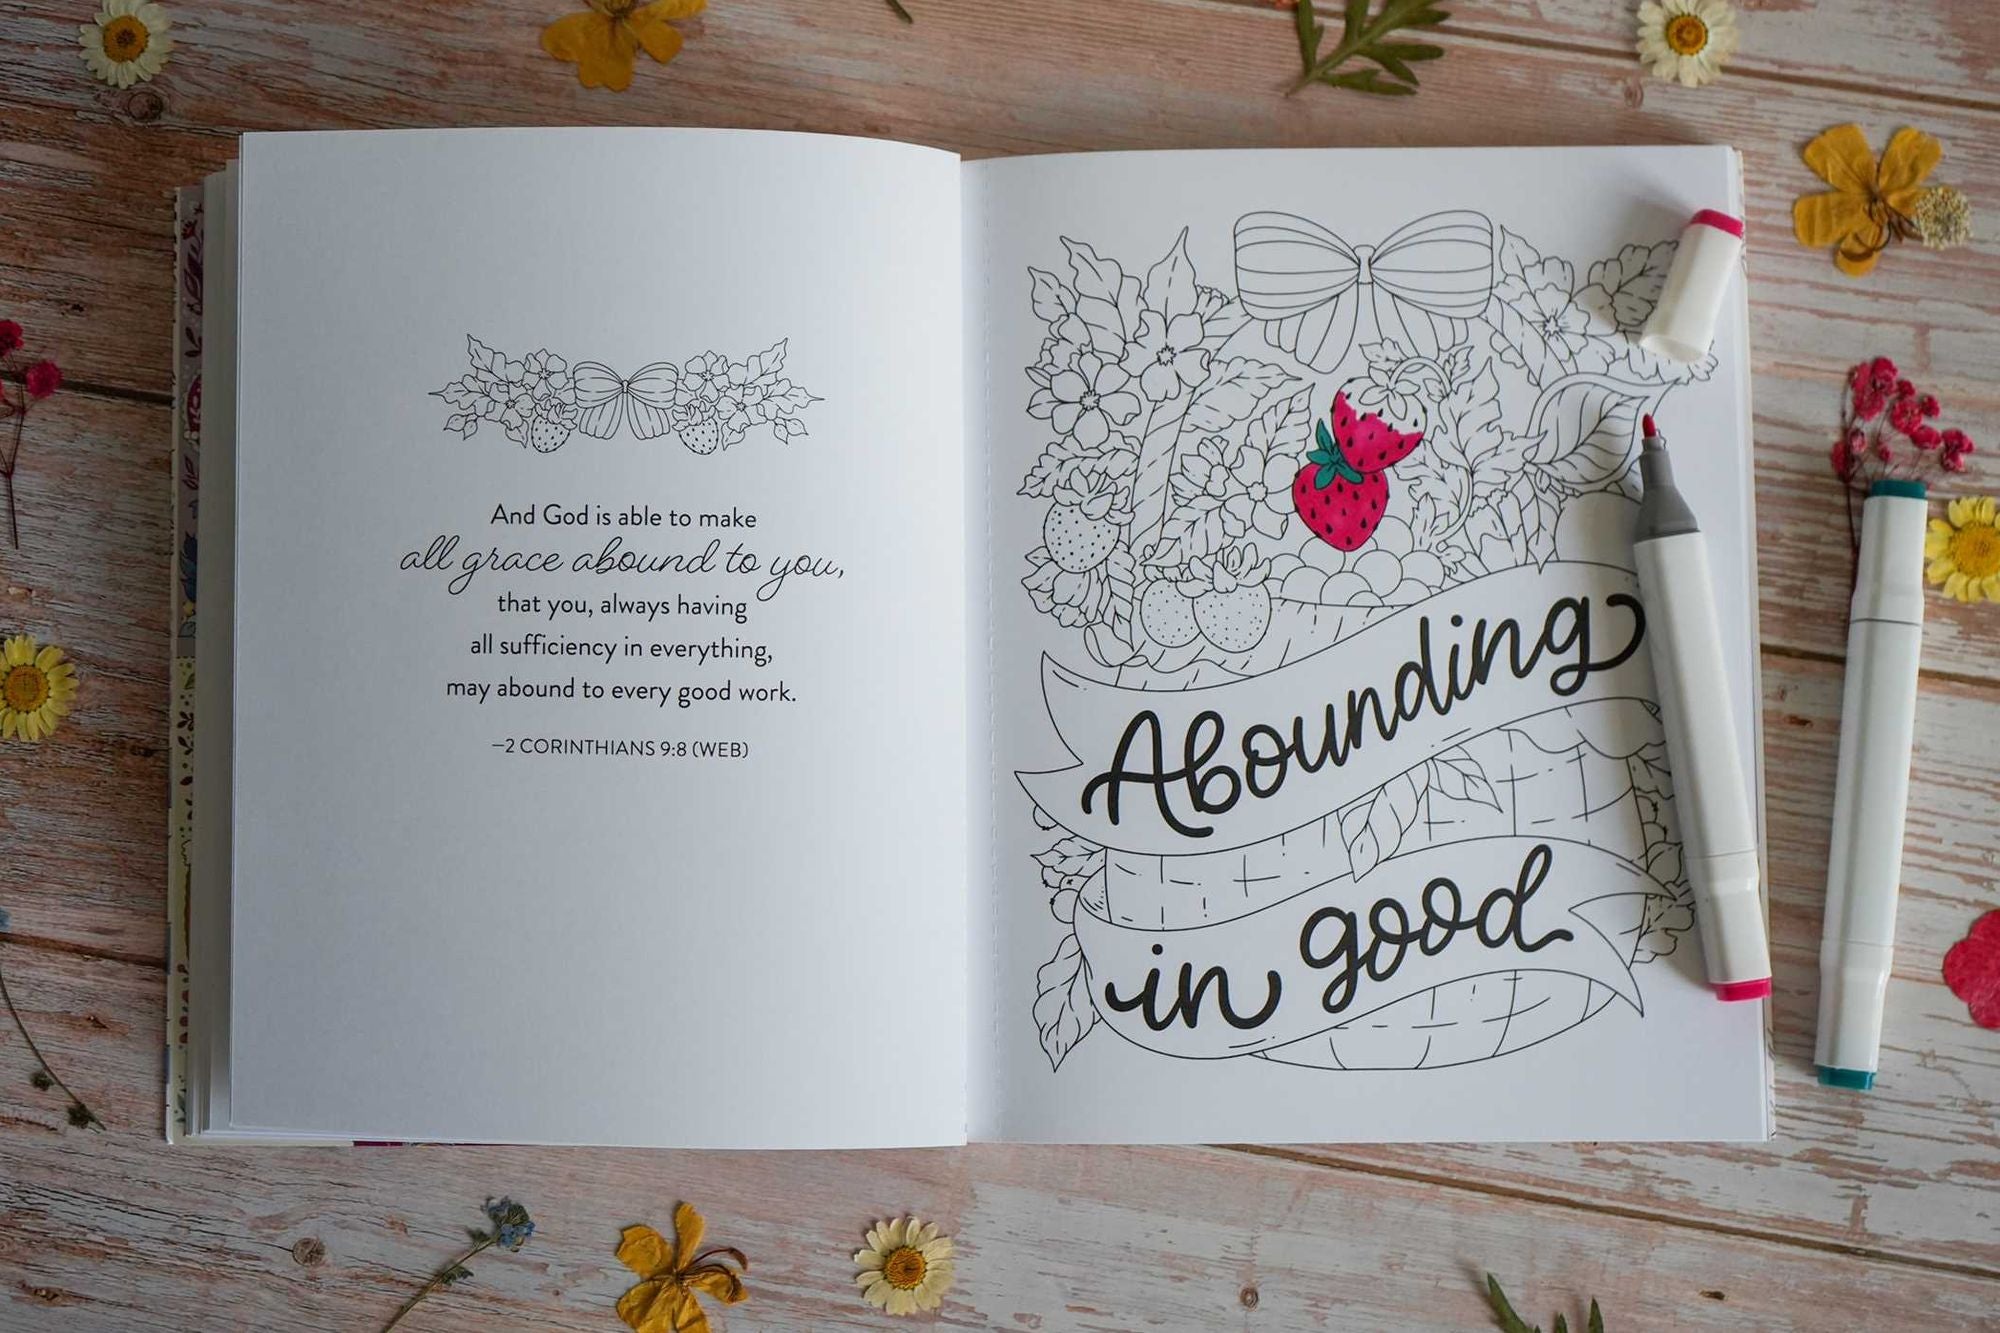 And God is able to make
all grace abound to you,
that you, always having
all sufficiency in everything,
may abound to every good work.
—2 CORINTHIANS 9:8 (WEB)
Abounding
in good